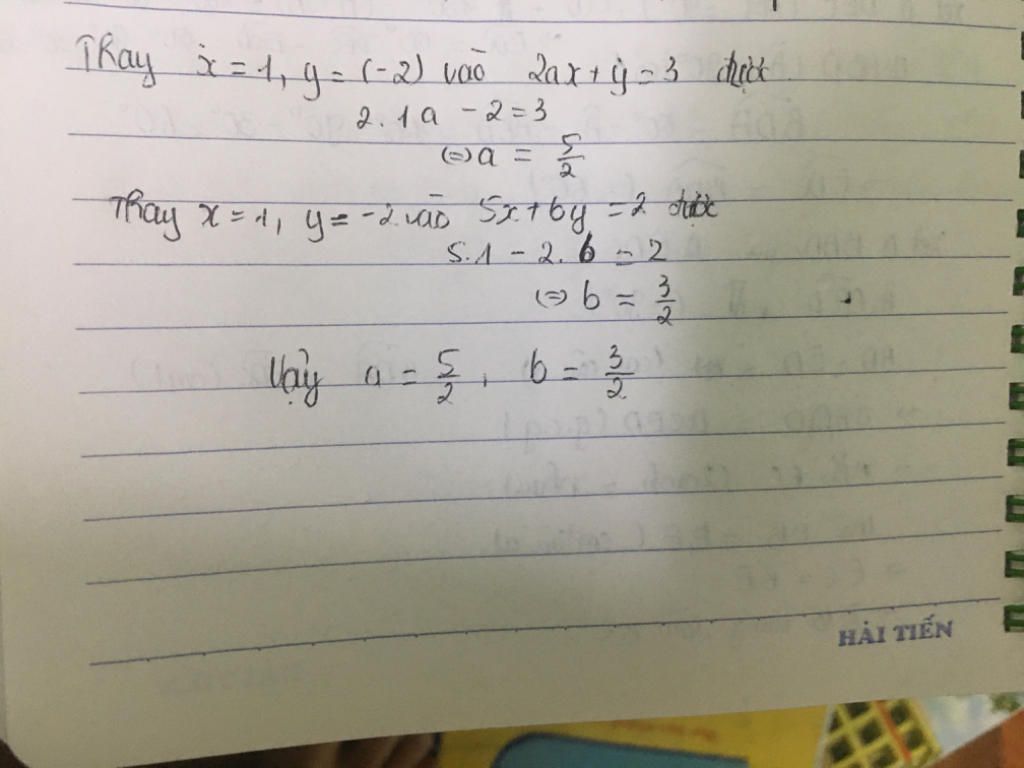 Thay x = 1, y = (-2) vào 2ax + y = 3 được
2.1a - 2 = 3
⇔ a = 5/2
Thay x = 1, y = -2 vào 5x + by = 2 được
5.1 - 2.b = 2
⇔ b = 3/2
Vậy a = 5/2, b = 3/2
HẢI TIẾN